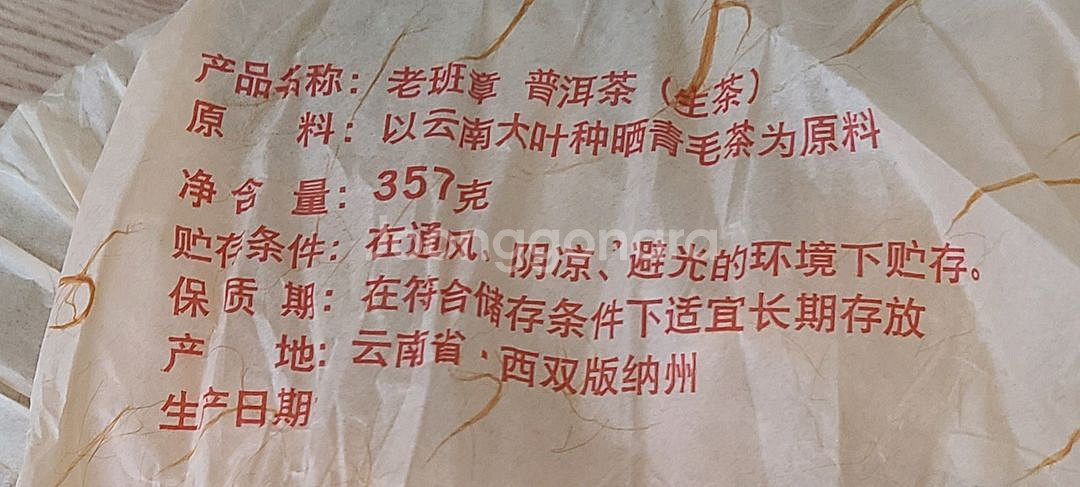 产品名称：老班章 普洱茶（生茶）
原 料：以云南大叶种晒青毛茶为原料
净含量：357克
贮存条件：在通风、阴凉、避光的环境下贮存。
保质期：在符合储存条件下适宜长期存放
产 地：云南省·西双版纳州
生产日期